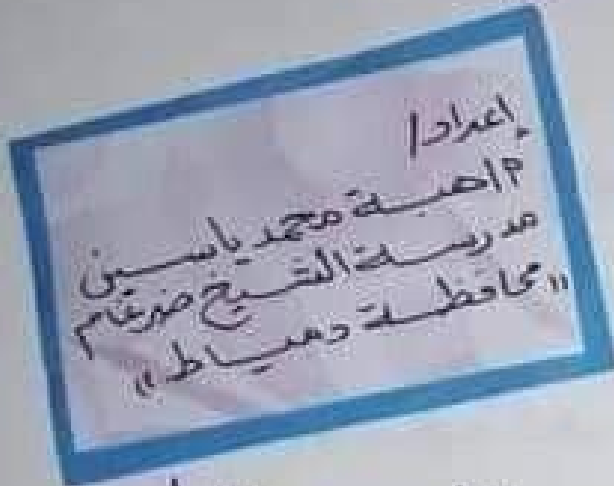 إعداد/
م/هبة محمد ياسين
مدرسة الشيخ ضرغام
"محافظة دمياط"